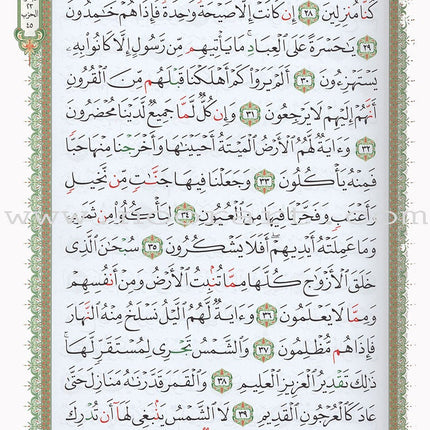 ٢٣
الحزب
٤٥
كُنَّا مُنزِلِينَ ٢٨ إِن كَانَتْ إِلَّا صَيْحَةً وَٰحِدَةً فَإِذَا هُمْ خَٰمِدُونَ
٢٩ يَٰحَسْرَةً عَلَى ٱلْعِبَادِ مَا يَأْتِيهِم مِّن رَّسُولٍ إِلَّا كَانُوا۟ بِهِۦ
يَسْتَهْزِءُونَ ٣٠ أَلَمْ يَرَوْا۟ كَمْ أَهْلَكْنَا قَبْلَهُم مِّنَ ٱلْقُرُونِ
أَنَّهُمْ إِلَيْهِمْ لَا يَرْجِعُونَ ٣١ وَإِن كُلٌّ لَّمَّا جَمِيعٌ لَّدَيْنَا مُحْضَرُونَ
٣٢ وَءَايَةٌ لَّهُمُ ٱلْأَرْضُ ٱلْمَيْتَةُ أَحْيَيْنَٰهَا وَأَخْرَجْنَا مِنْهَا حَبًّا
فَمِنْهُ يَأْكُلُونَ ٣٣ وَجَعَلْنَا فِيهَا جَنَّٰتٍ مِّن نَّخِيلٍ
وَأَعْنَٰبٍ وَفَجَّرْنَا فِيهَا مِنَ ٱلْعُيُونِ ٣٤ لِيَأْكُلُوا۟ مِن ثَمَرِهِۦ
وَمَا عَمِلَتْهُ أَيْدِيهِمْ أَفَلَا يَشْكُرُونَ ٣٥ سُبْحَٰنَ ٱلَّذِى
خَلَقَ ٱلْأَزْوَٰجَ كُلَّهَا مِمَّا تُنۢبِتُ ٱلْأَرْضُ وَمِنْ أَنفُسِهِمْ
وَمِمَّا لَا يَعْلَمُونَ ٣٦ وَءَايَةٌ لَّهُمُ ٱلَّيْلُ نَسْلَخُ مِنْهُ ٱلنَّهَارَ
فَإِذَا هُم مُّظْلِمُونَ ٣٧ وَٱلشَّمْسُ تَجْرِى لِمُسْتَقَرٍّ لَّهَا
ذَٰلِكَ تَقْدِيرُ ٱلْعَزِيزِ ٱلْعَلِيمِ ٣٨ وَٱلْقَمَرَ قَدَّرْنَٰهُ مَنَازِلَ حَتَّىٰ
عَادَ كَٱلْعُرْجُونِ ٱلْقَدِيمِ ٣٩ لَا ٱلشَّمْسُ يَنۢبَغِى لَهَآ أَن تُدْرِكَ